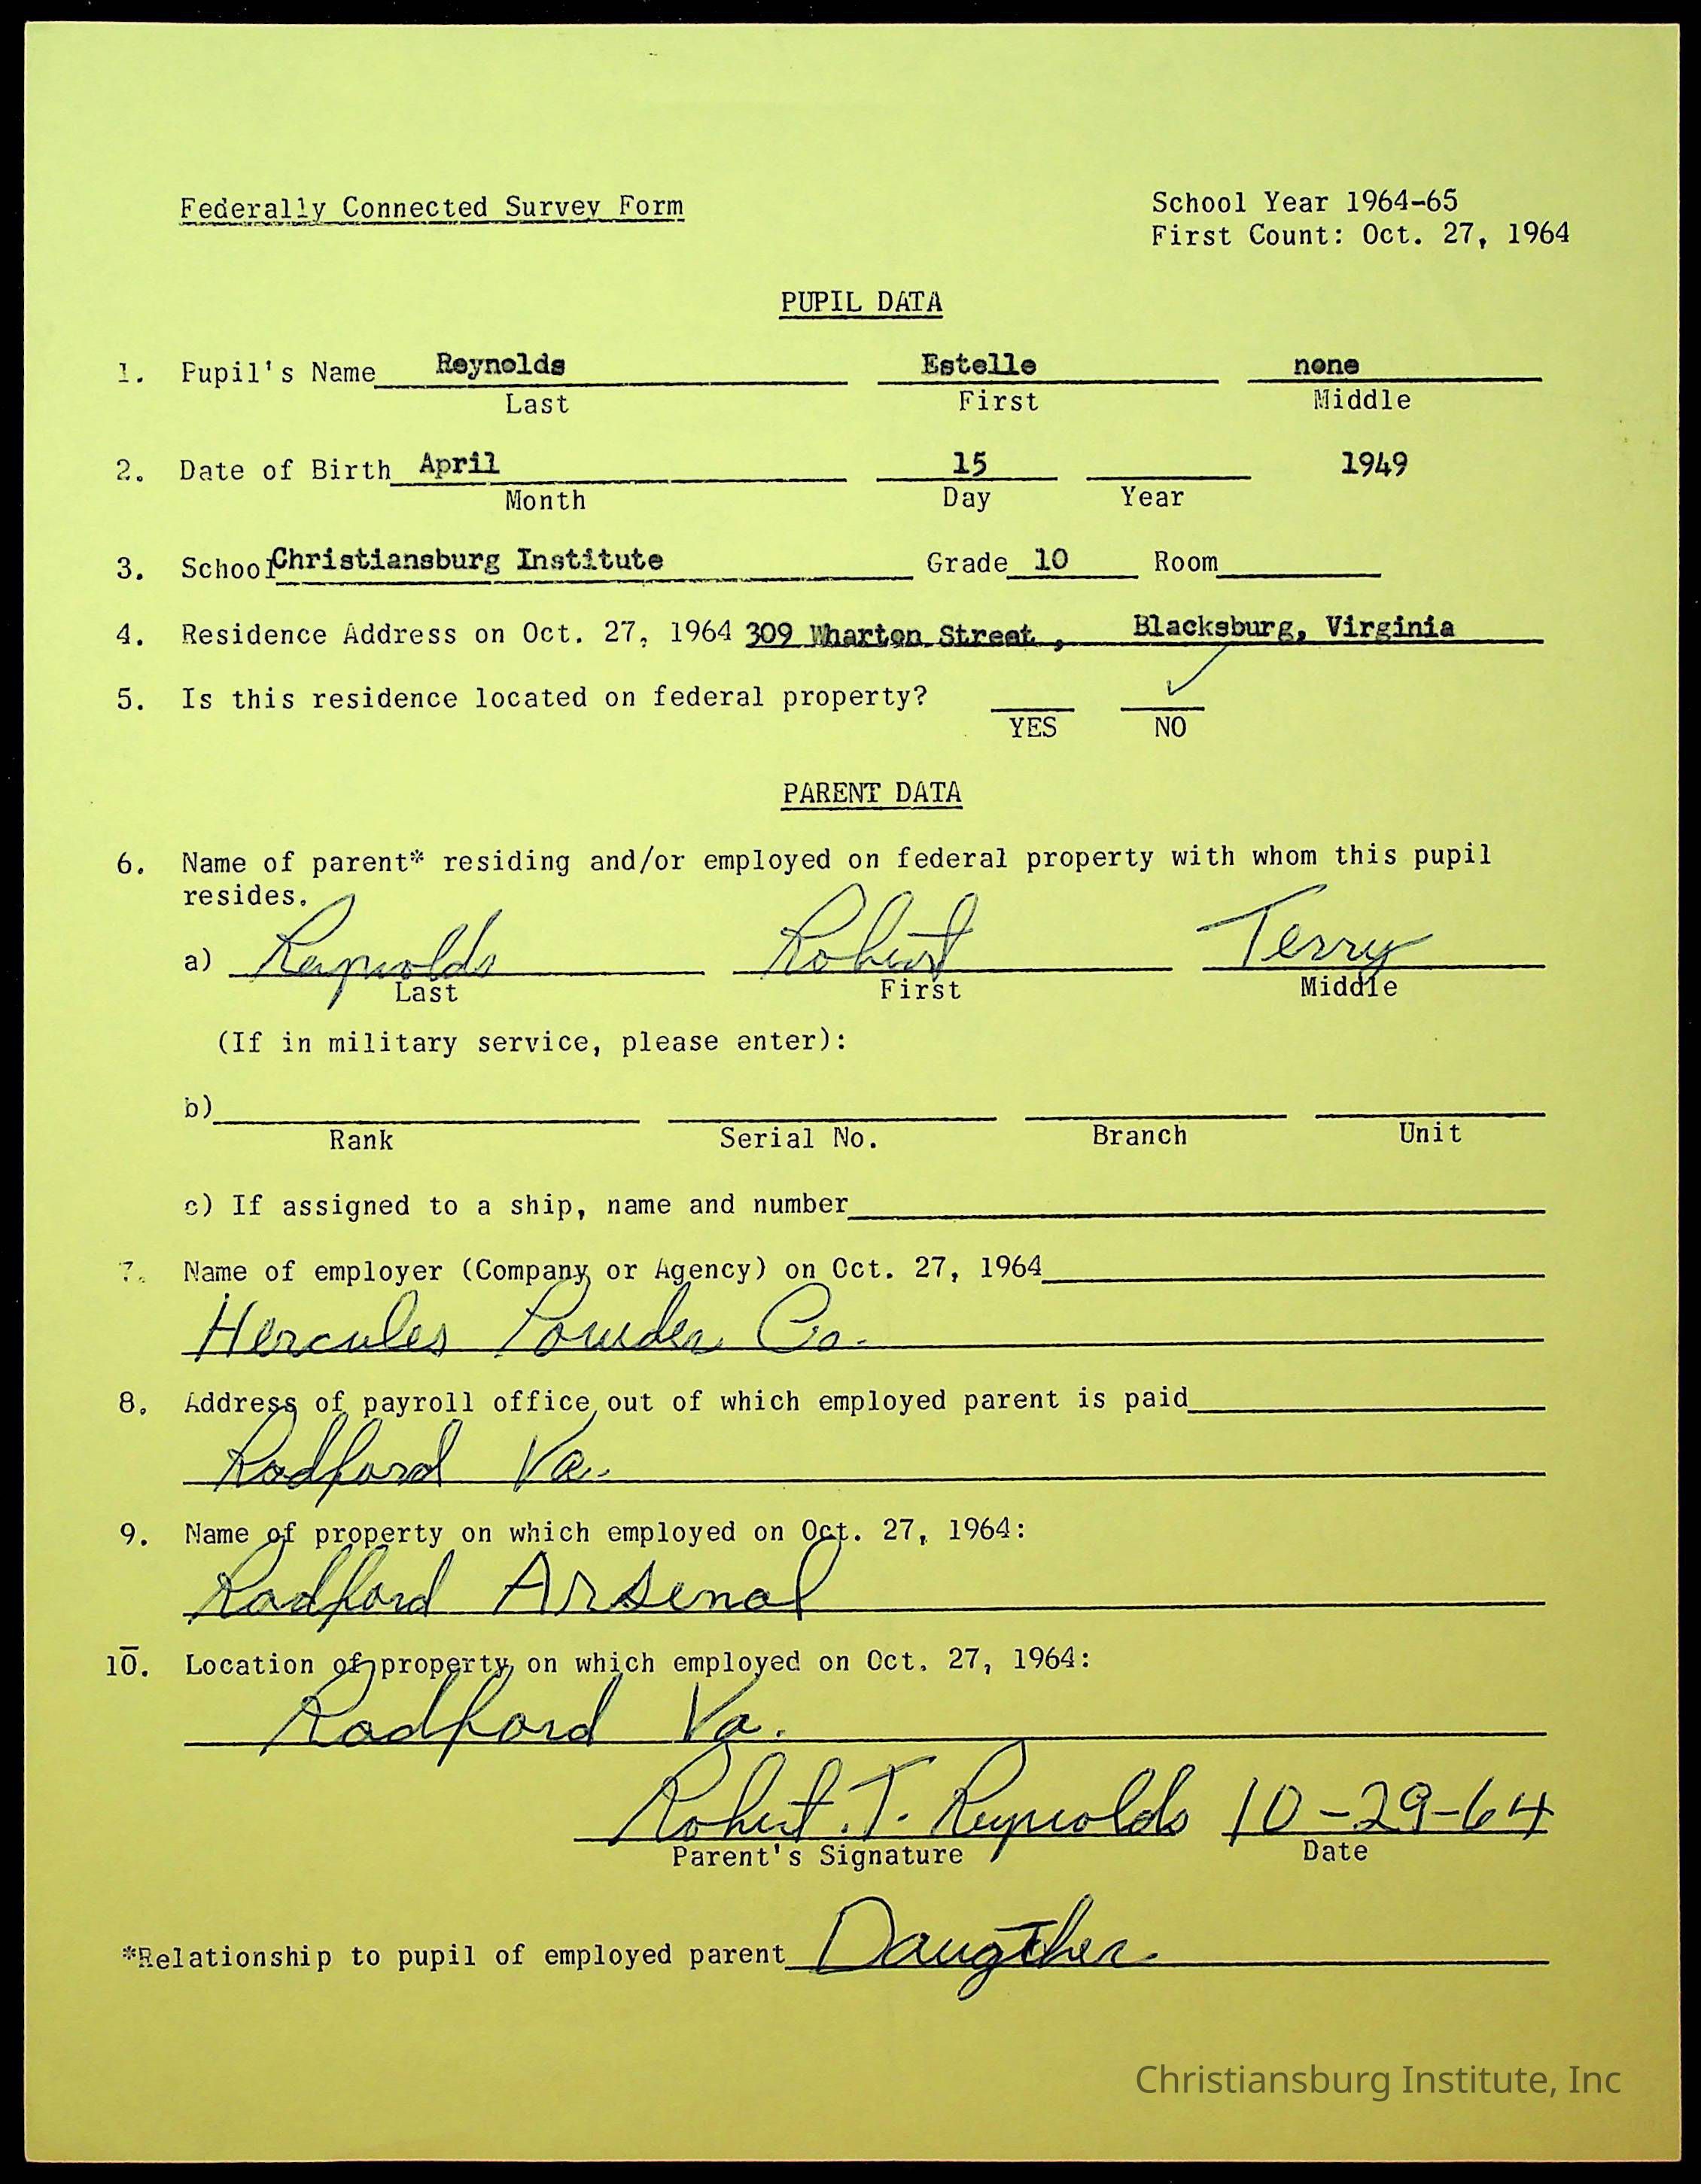 Federally Connected Survey Form
School Year 1964-65
First Count: Oct. 27, 1964
PUPIL DATA
1. Pupil's Name Reynolds Estelle none
Last First Middle
2. Date of Birth April 15 1949
Month Day Year
3. School Christiansburg Institute Grade 10 Room
4. Residence Address on Oct. 27, 1964 309 Wharton Street, Blacksburg, Virginia
5. Is this residence located on federal property? ✓
YES NO
PARENT DATA
6. Name of parent* residing and/or employed on federal property with whom this pupil
resides.
a) Reynolds Robert Terry
Last First Middle
(If in military service, please enter):
b)
Rank Serial No. Branch Unit
c) If assigned to a ship, name and number
7. Name of employer (Company or Agency) on Oct. 27, 1964
Hercules Powder Co.
8. Address of payroll office out of which employed parent is paid
Radford Va.
9. Name of property on which employed on Oct. 27, 1964:
Radford Arsenal
10. Location of property on which employed on Oct. 27, 1964:
Radford Va.
Robert T. Reynolds 10-29-64
Parent's Signature Date
*Relationship to pupil of employed parent Daugther
Christiansburg Institute, Inc